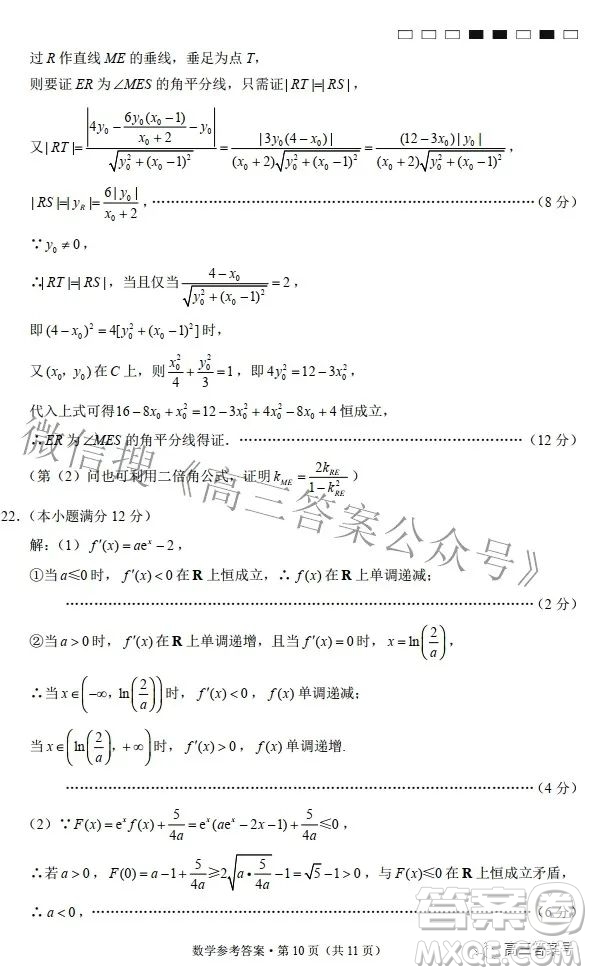 过 R 作直线 ME 的垂线，垂足为点 T，
则要证 ER 为∠MES 的角平分线，只需证|RT|=|RS|，
又|RT|=|4y₀-6y₀(x₀-1)/(x₀+2)-y₀|/√(y₀²+(x₀-1)²)=|3y₀(4-x₀)|/((x₀+2)√(y₀²+(x₀-1)²))=(12-3x₀)|y₀|/((x₀+2)√(y₀²+(x₀-1)²))，
|RS|=|y_R|=6|y₀|/(x₀+2)，……（8 分）
∵y₀≠0，
∴|RT|=|RS|，当且仅当(4-x₀)/√(y₀²+(x₀-1)²)=2，
即(4-x₀)²=4[y₀²+(x₀-1)²]时，
又(x₀，y₀)在 C 上，则x₀²/4+y₀²/3=1，即4y₀²=12-3x₀²，
代入上式可得16-8x₀+x₀²=12-3x₀²+4x₀²-8x₀+4恒成立，
∴ER 为∠MES 的角平分线得证．……（12 分）
（第（2）问也可利用二倍角公式，证明k_ME=2k_RE/(1-k_RE²)）
22．（本小题满分 12 分）
解：（1）f′(x)=aeˣ-2，
①当a≤0时，f′(x)<0在 R 上恒成立，∴f(x)在 R 上单调递减；
……（2 分）
②当a>0时，f′(x)在 R 上单调递增，且当f′(x)=0时，x=ln(2/a)，
∴当x∈(-∞，ln(2/a))时，f′(x)<0，f(x)单调递减；
当x∈(ln(2/a)，+∞)时，f′(x)>0，f(x)单调递增.
……（4 分）
（2）∵F(x)=eˣf(x)+5/4a=eˣ(aeˣ-2x-1)+5/4a≤0，
∴若a>0，F(0)=a-1+5/4a≥2√(a•5/4a)-1=√5-1>0，与F(x)≤0在 R 上恒成立矛盾，
∴a<0，……（6 分）
数学参考答案·第 10 页（共 11 页）
微信搜《高三答案公众号》
答案圈
高三答案号
MXQE.COM